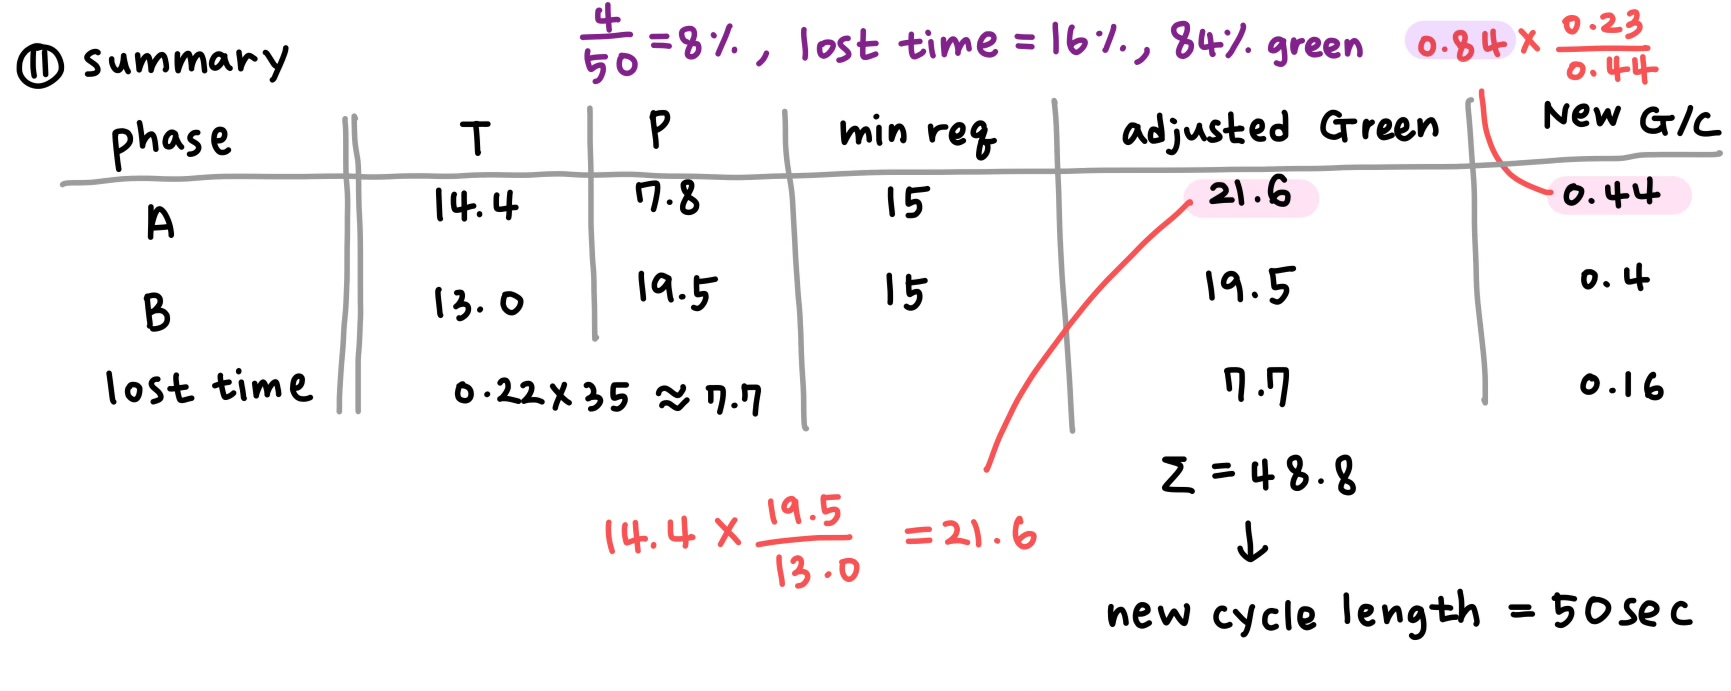 4/50 = 8%, lost time = 16%, 84% green 0.84 × 0.23/0.44
⑪ summary
phase T P min req adjusted Green New G/C
A 14.4 7.8 15 21.6 0.44
B 13.0 19.5 15 19.5 0.4
lost time 0.22 × 35 ≈ 7.7 7.7 0.16
Σ = 48.8
14.4 × 19.5/13.0 = 21.6
↓
new cycle length = 50 sec